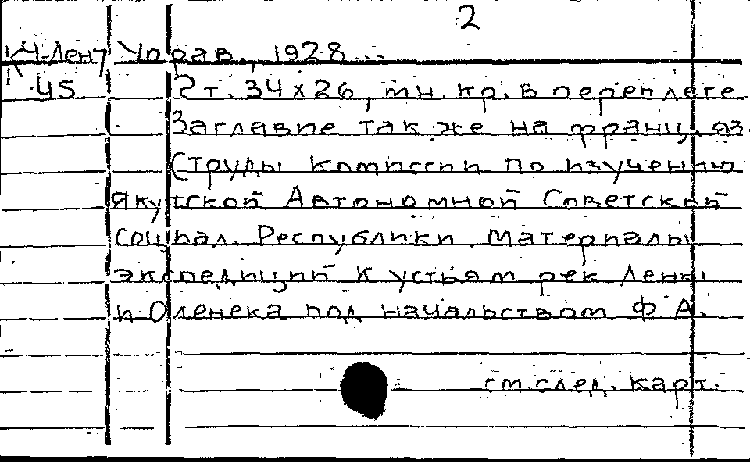 2
К4-Лент Управ., 1928...
45 2 т. 34 х 26, тн. кр. в переплете
Заглавие так же на франц. яз.
(Труды комиссии по изучению
Якутской Автономной Советской
Социал. Республики. Материалы
экспедиций к устьям рек Лены
и Оленека под начальством Ф. А.
см. след. карт.